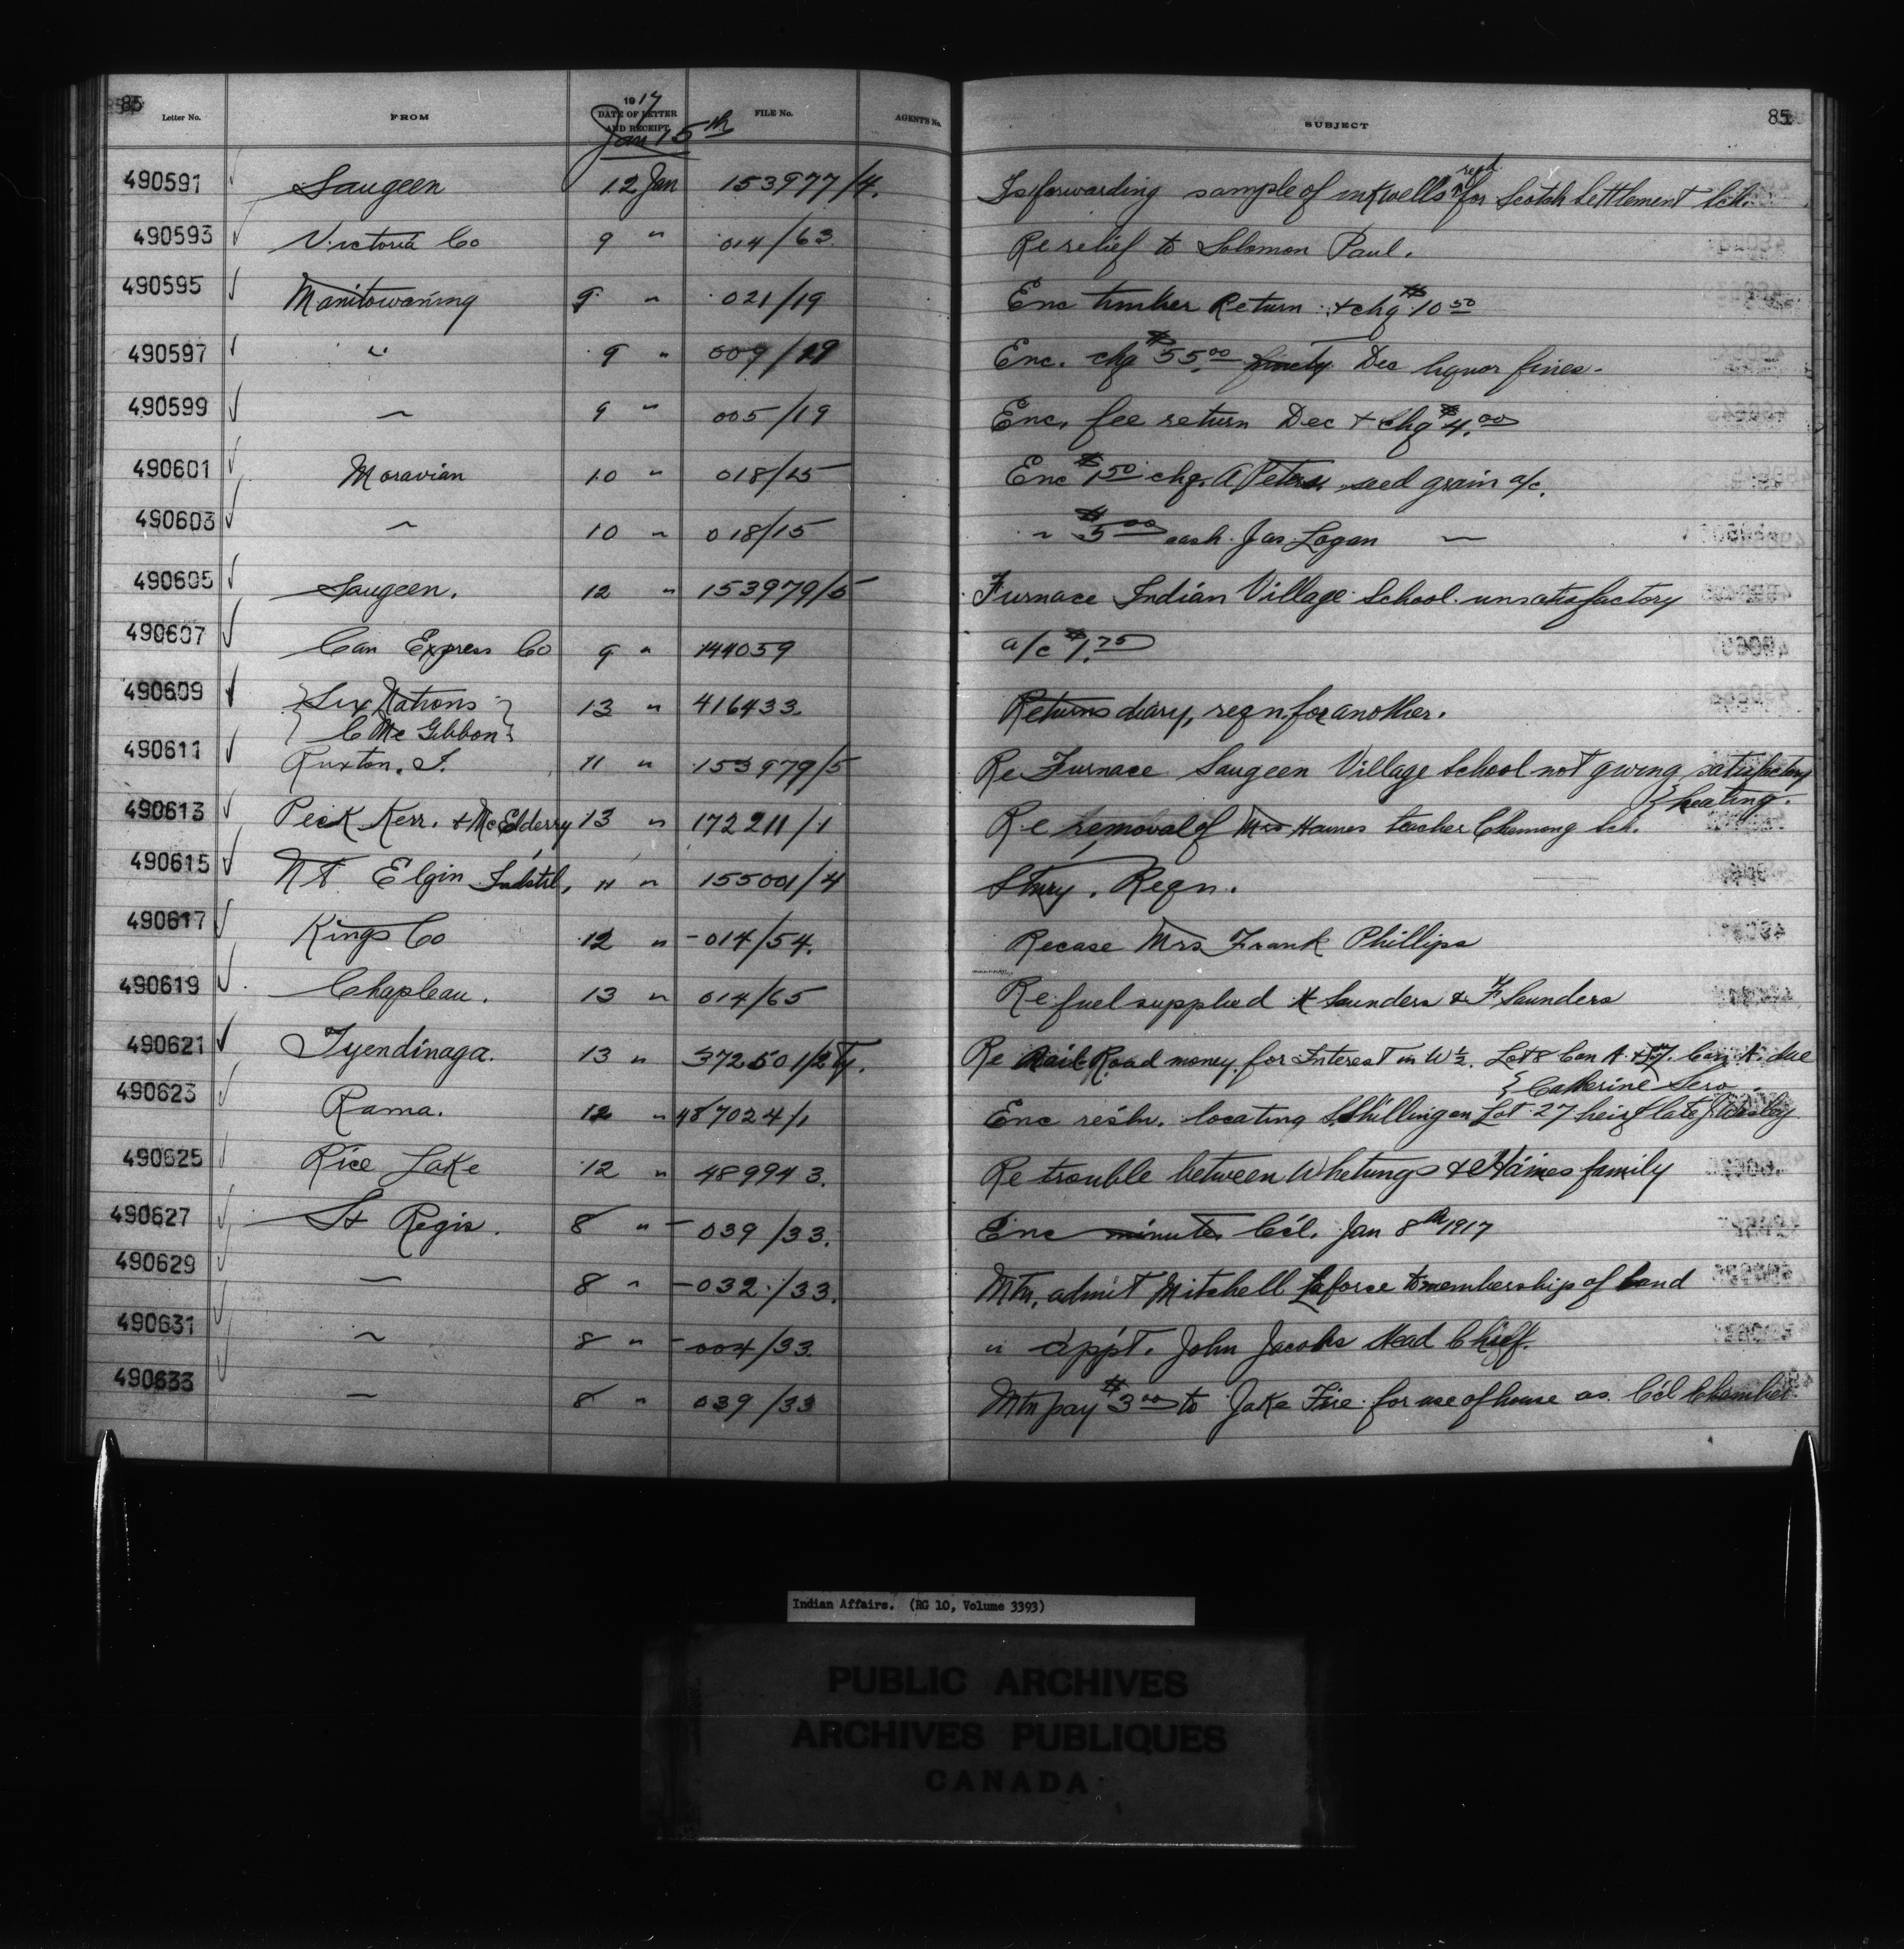 85 85
Letter No. FROM 1917 DATE OF LETTER AND RECEIPT FILE No. AGENTS No. SUBJECT
Jan 15th
490591 Saugeen 12 Jan 153977/4. Is forwarding sample of inkwells reqd for Scotch Settlement Sch.
490593 Victoria Co 9 " 014/63 Re relief to Solomon Paul.
490595 Manitowaning 9 " 021/19 Enc timber Return + chq $10 50
490597 " 9 " 009/19 Enc. chq $55.00 Dec liquor fines.
490599 " 9 " 005/19 Enc. fee return Dec + chq $4.00
490601 Moravian 10 " 018/15 Enc $1 50 chq. A Peters seed grain a/c.
490603 " 10 " 018/15 " $5 00 cash Jas Logan "
490605 Saugeen. 12 " 153979/5 Furnace Indian Village School unsatisfactory
490607 Can Express Co 9 " 144059 a/c $1.75
490609 Six Nations 13 " 416433 Returns diary, reqn. for another.
C McGibbon
490611 Ruxton. J. 11 " 153979/5 Re Furnace Saugeen Village School not giving satisfactory
heating.
490613 Peck Kerr. + McElderry 13 " 172211/1 Re removal of Mrs Haines teacher Chemong Sch.
490615 Mt Elgin Indstl, 11 " 155001/4 Stnry. Reqn.
490617 Kings Co 12 " 014/54. Re case Mrs Frank Phillips
490619 Chapleau. 13 " 014/65 Re fuel supplied H Saunders & F Saunders
490621 Tyendinaga. 13 " 372501/2 Ty. Re Rail Road money for Interest in W ½ Lot 8 Con A + Con A. due
Catherine Sero
490623 Rama. 12 " 487024/1 Enc resln. locating S. Shilling on Lot 27 heir of late J
490625 Rice Lake 12 " 489943. Re trouble between Whetungs & Haines family
490627 St Regis. 8 " 039/33. Enc minutes Ccl. Jan 8th 1917
490629 " 8 " 032/33. Mtn. admit Mitchell Laforce to membership of band
490631 " 8 " 004/33 " appt. John Jacobs Head Chief.
490633 " 8 " 039/33 Mtn pay $3 00 to Jake Fire for use of house as Ccl Chamber
Indian Affairs. (RG 10, Volume 3393)
PUBLIC ARCHIVES
ARCHIVES PUBLIQUES
CANADA